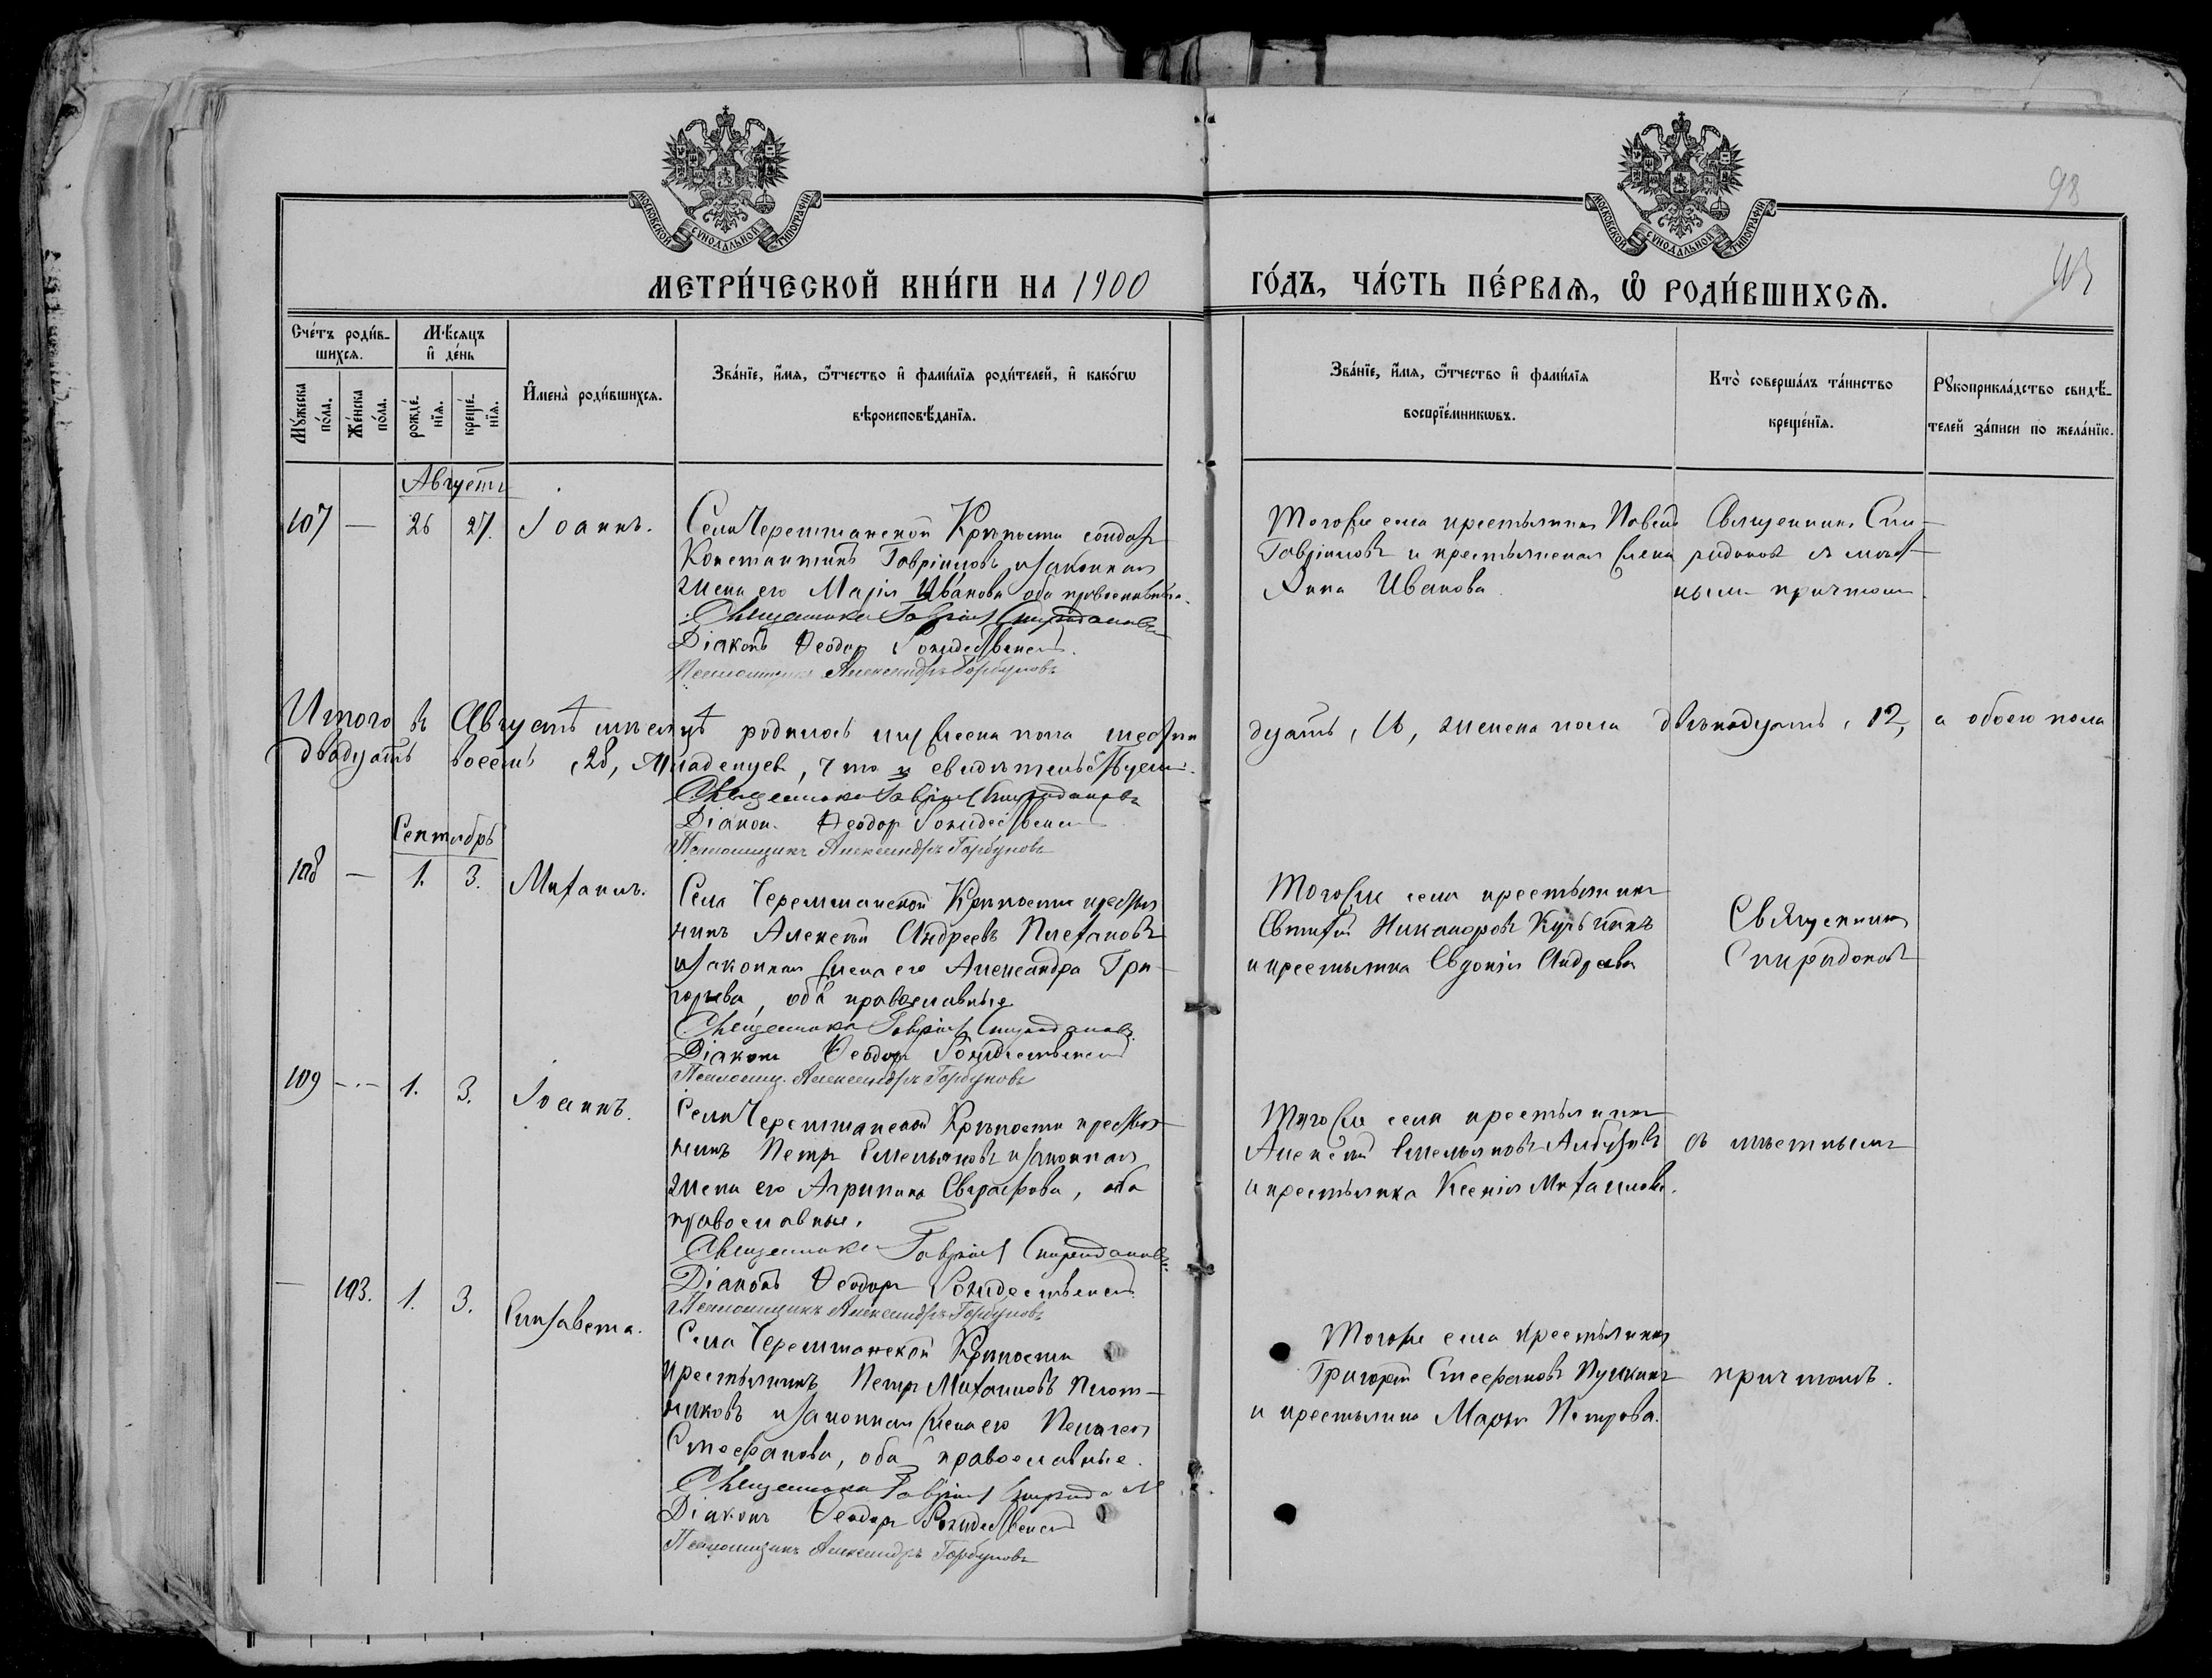 МОСКОВСКОЙ СѴНОДАЛЬНОЙ ТИПОГРАФІИ
МОСКОВСКОЙ СѴНОДАЛЬНОЙ ТИПОГРАФІИ
98
МЕТРИ́ЧЕСКОЙ КНИ́ГИ НА 1900
ГО́ДЪ, ЧА́СТЬ ПЕ́РВАѦ, Ѡ҆ РОДИ́ВШИХСѦ.
Сче́тъ роди́в-
шихсѧ.
Мѣ́сѧцъ
и҆ де́нь
Мꙋ́жеска
по́ла.
Же́нска
по́ла.
рожде́-
нїѧ.
креще́-
нїѧ.
И҆мена̀ роди́вшихсѧ.
Зва́нїе, и҆́мѧ, ѻ҆́тчество и҆ фами́лїѧ роди́телей, и҆ како́гѡ
вѣроисповѣ́данїѧ.
Зва́нїе, и҆́мѧ, ѻ҆́тчество и҆ фами́лїѧ
воспрїе́мникѡвъ.
Кто̀ соверша́лъ та́инство
креще́нїѧ.
Рꙋкоприкла́дство свидѣ́-
телей за́писи по жела́нїю.
Августъ
107 — 26 27. Іоаннъ.
Села Черемшанской Крѣпости солдатъ
Константинъ Гавріиловъ и законная
жена его Марія Иванова оба православные.
Священникъ Гавріилъ Спиридоновъ
Діаконъ Ѳеодоръ Рождественскій
Псаломщикъ Александръ Горбуновъ
Тогоже села крестьянинъ
Гавріиловъ и крестьянская жена
Анна Иванова
Священникъ Спи-
ридоновъ съ мѣст-
нымъ причтомъ.
Итого въ Августѣ мѣсяцѣ родилось мужеска пола шестна
дцать, 16, женска пола двѣнадцать, 12, а обоего пола
двадцать восемь, 28, младенцевъ, что и свидѣтельствуемъ.
Священникъ Гавріилъ Спиридоновъ
Діаконъ Ѳеодоръ Рождественскій
Псаломщикъ Александръ Горбуновъ
Сентябрь
108 — 1. 3. Михаилъ.
Села Черемшанской Крѣпости крестья
нинъ Алексѣй Андреевъ
и законная жена его Александра Гри-
горьева, оба православные
Священникъ Гавріилъ Спиридоновъ
Діаконъ Ѳеодоръ Рождественскій
Псаломщ. Александръ Горбуновъ
Тогоже села крестьянинъ
Евтихій Никаноровъ
и крестьянка Евдокія Андреева
Священникъ
Спиридоновъ
109 — 1. 3. Іоаннъ.
Села Черемшанской Крѣпости крестья
нинъ Петръ Емельяновъ и законная
жена его Агрипина Евграфова, оба
православные.
Священникъ Гавріилъ Спиридоновъ
Діаконъ Ѳеодоръ Рождественскій
Псаломщикъ Александръ Горбуновъ
Тогоже села крестьянинъ
Алексѣй Емельяновъ
и крестьянка Ксенія Михаилова.
съ мѣстнымъ
— 103. 1. 3. Елизавета.
Села Черемшанской Крѣпости
крестьянинъ Петръ Михаиловъ Плот-
никовъ и законная жена его Пелагея
Стефанова, оба православные.
Священникъ Гавріилъ
Діаконъ Ѳеодоръ Рождественскій
Псаломщикъ Александръ Горбуновъ
Тогоже села крестьянинъ
Григорій Стефановъ Пушкинъ
и крестьянка Марья Петрова.
причтомъ.